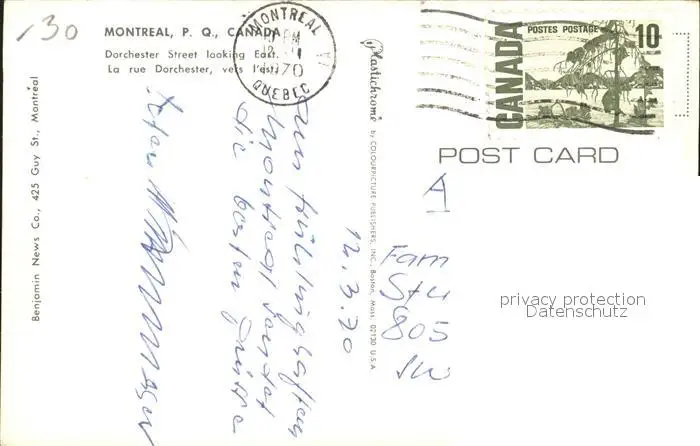 130
MONTREAL, P. Q., CANADA
Dorchester Street looking East.
La rue Dorchester, vers l'est.
Benjamin News Co., 425 Guy St., Montréal
MONTREAL
PM
1970
QUEBEC
Plastichrome
by COLOURPICTURE PUBLISHERS, INC., Boston, Mass. 02130 U.S.A.
POSTES POSTAGE
10
CANADA
POST CARD
12.3.70
Aus frühlingshaften
Montreal sendet
die besten Grüsse
A
Fam
Stu
805
privacy protection
Datenschutz